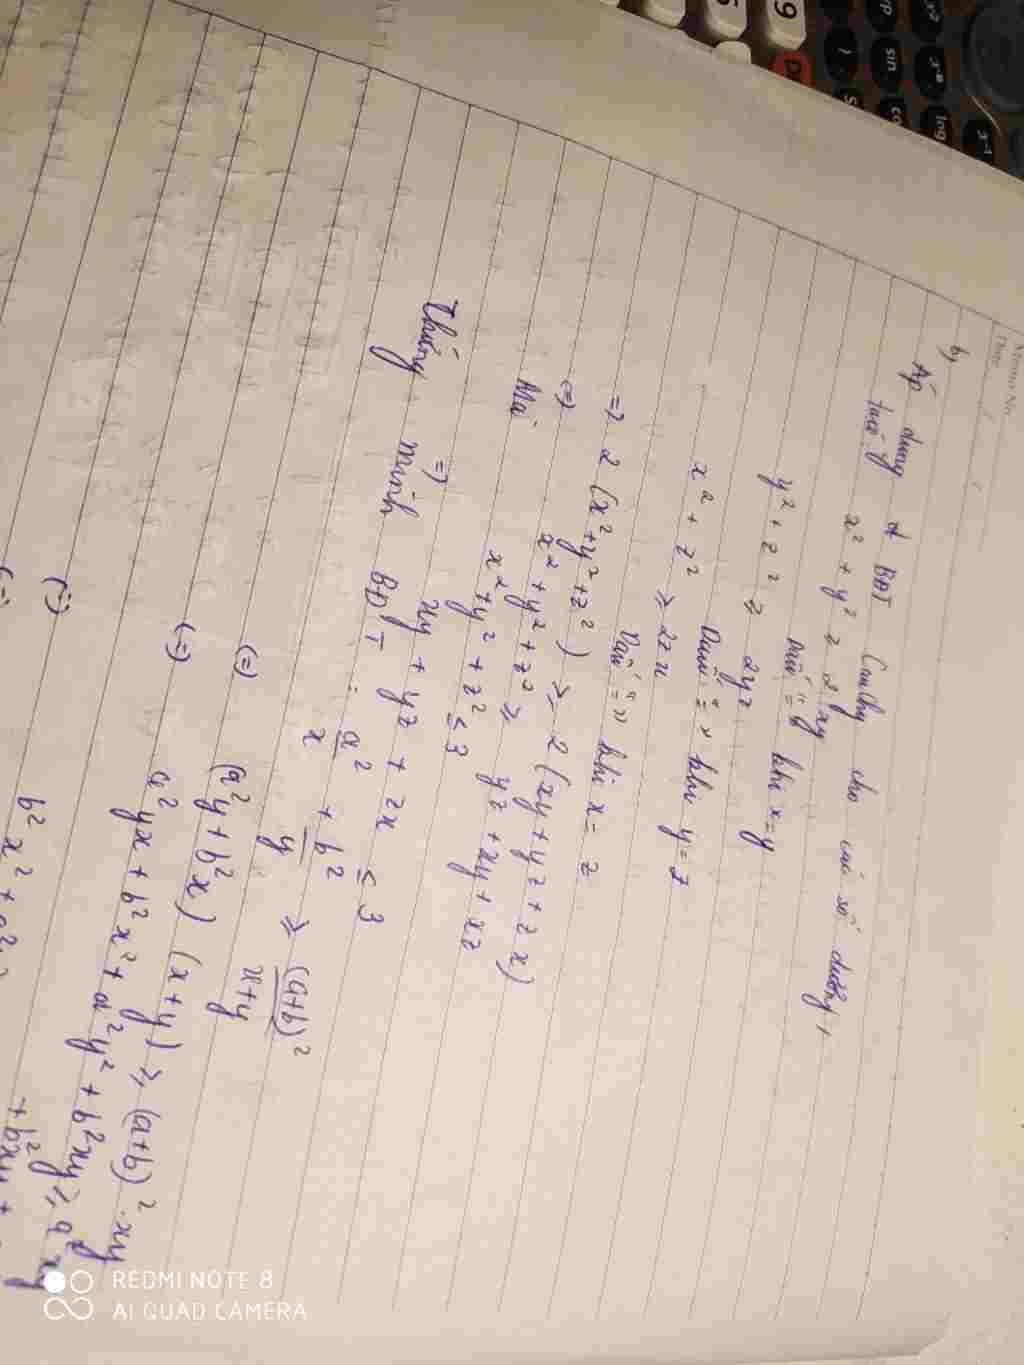 b,
Áp dụng BĐT Cauchy cho các số dương,
ta có
x² + y² ≥ 2xy
Dấu "=" khi x=y
y² + z² ≥ 2yz
Dấu "=" khi y=z
x² + z² ≥ 2zx
Dấu "=" khi x=z
=> 2(x²+y²+z²) ≥ 2(xy+yz+zx)
<=> x²+y²+z² ≥ yz+xy+xz
Mà x²+y²+z² ≤ 3
=> xy + yz + zx ≤ 3
Chứng minh BĐT: a²/x + b²/y ≥ (a+b)²/x+y
(=) (a²y+b²x)(x+y) ≥ (a+b)².xy
(=) a²yx+b²x²+a²y²+b²xy ≥ a²xy
+b²xy+
(=) b²x²+a²
(=)
REDMI NOTE 8
AI QUAD CAMERA